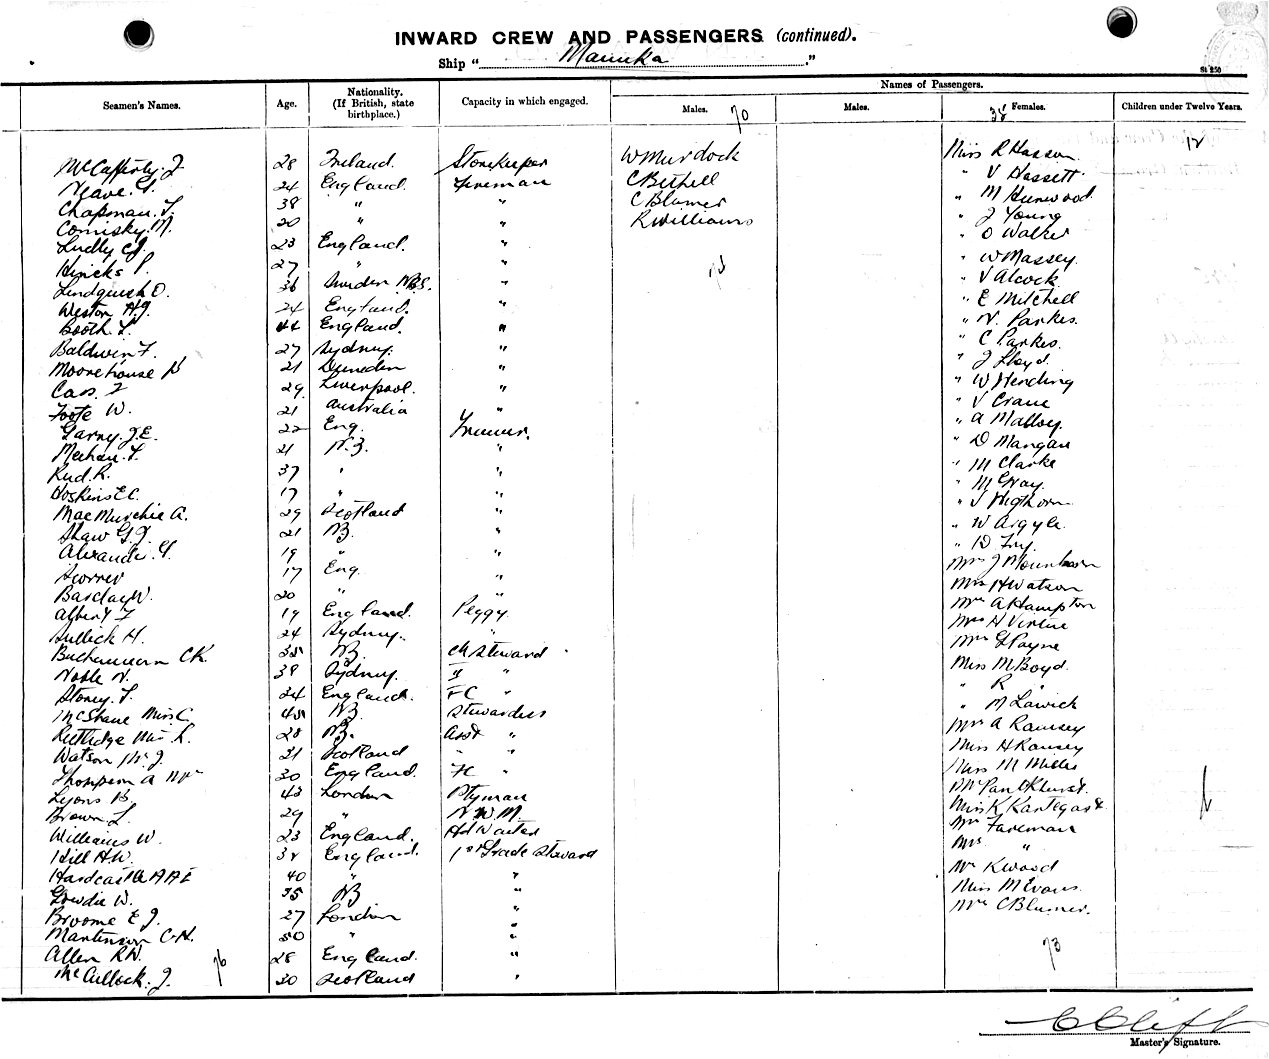 INWARD CREW AND PASSENGERS (continued).
Ship "Manuka."
St 250
Seamen's Names. Age. Nationality. (If British, state birthplace.) Capacity in which engaged. Names of Passengers.
Males. 70 Males. 38 Females. Children under Twelve Years.
12
McCafferty J 28 Ireland. Storekeeper W Murdock Miss R Hassan
Neave G. 24 England. Fireman C Bethell " V Hassett
Chapman. F. 38 " " C Blumer " M Henwood
Comisky. M. 20 " " R Williams " J Young
Ludlly C J. 23 England. " " O Walker
Hincks P. 27 " " " W Massey.
Lindquist O. 36 Sweden N.B.S. " " V Alcock
Weston H.J. 24 England. " " E Mitchell
Booth. L. 44 England. " " N. Parkes.
Baldwin F. 27 Sydney. " " C Parkes.
Moorehouse 21 Dunedin " " J Lloyd.
Cass. J 29 Liverpool. " " W Hending
Foote W. 21 Australia " " V Crane
Garny. J.E. 22 Eng. Trimmer. " A Malloy.
Meehan. F. 21 N.Z. " " D Mangan
Rud. R. 37 " " " M Clarke
Hoskins E C. 17 " " " M Gray.
MacMurchie A. 29 Scotland " " J Highorn
Shaw G.J. 21 NZ. " " W Argyle.
Alexander. G. 19 " " " D Fry.
17 Eng. " Mrs J
Barclay W. 20 " " Mrs H Watson
Albert F 19 England. Peggy. Mrs A Hampton
Sullick H. 24 Sydney. " Mrs H Virtue
Buchannan C K. 35 NZ Ch Steward Mrs G Payne
Noble N. 39 Sydney. II " Miss M Boyd.
Storey. F. 34 England. FC " " R "
McShane Miss C. 45 NZ. Stewardess " M Lawick
Rutledge Miss L. 28 NZ. Asst " Mrs A Ramsey
Watson Mr J. 31 Scotland " " Miss H Ramsey
Thompson A 30 England. FC " Miss M Miller
Lyons B. 42 London Ptyman Pankhurst.
Brown L. 29 " N W M. Miss K
Williams W. 23 England. Hd Waiter Mrs Fareman
Hill H.W. 32 England. 1st Grade Steward Mrs "
Hardcastle 40 " " Mrs K Wood
Gowdie W. 35 NZ " Miss M Evans.
Broome E J. 27 London " Mrs C Blumer.
Martinson C.H. 50 " "
Allen R.W. 28 England. " 73
McCullock. J. 76 30 Scotland "
Master's Signature.